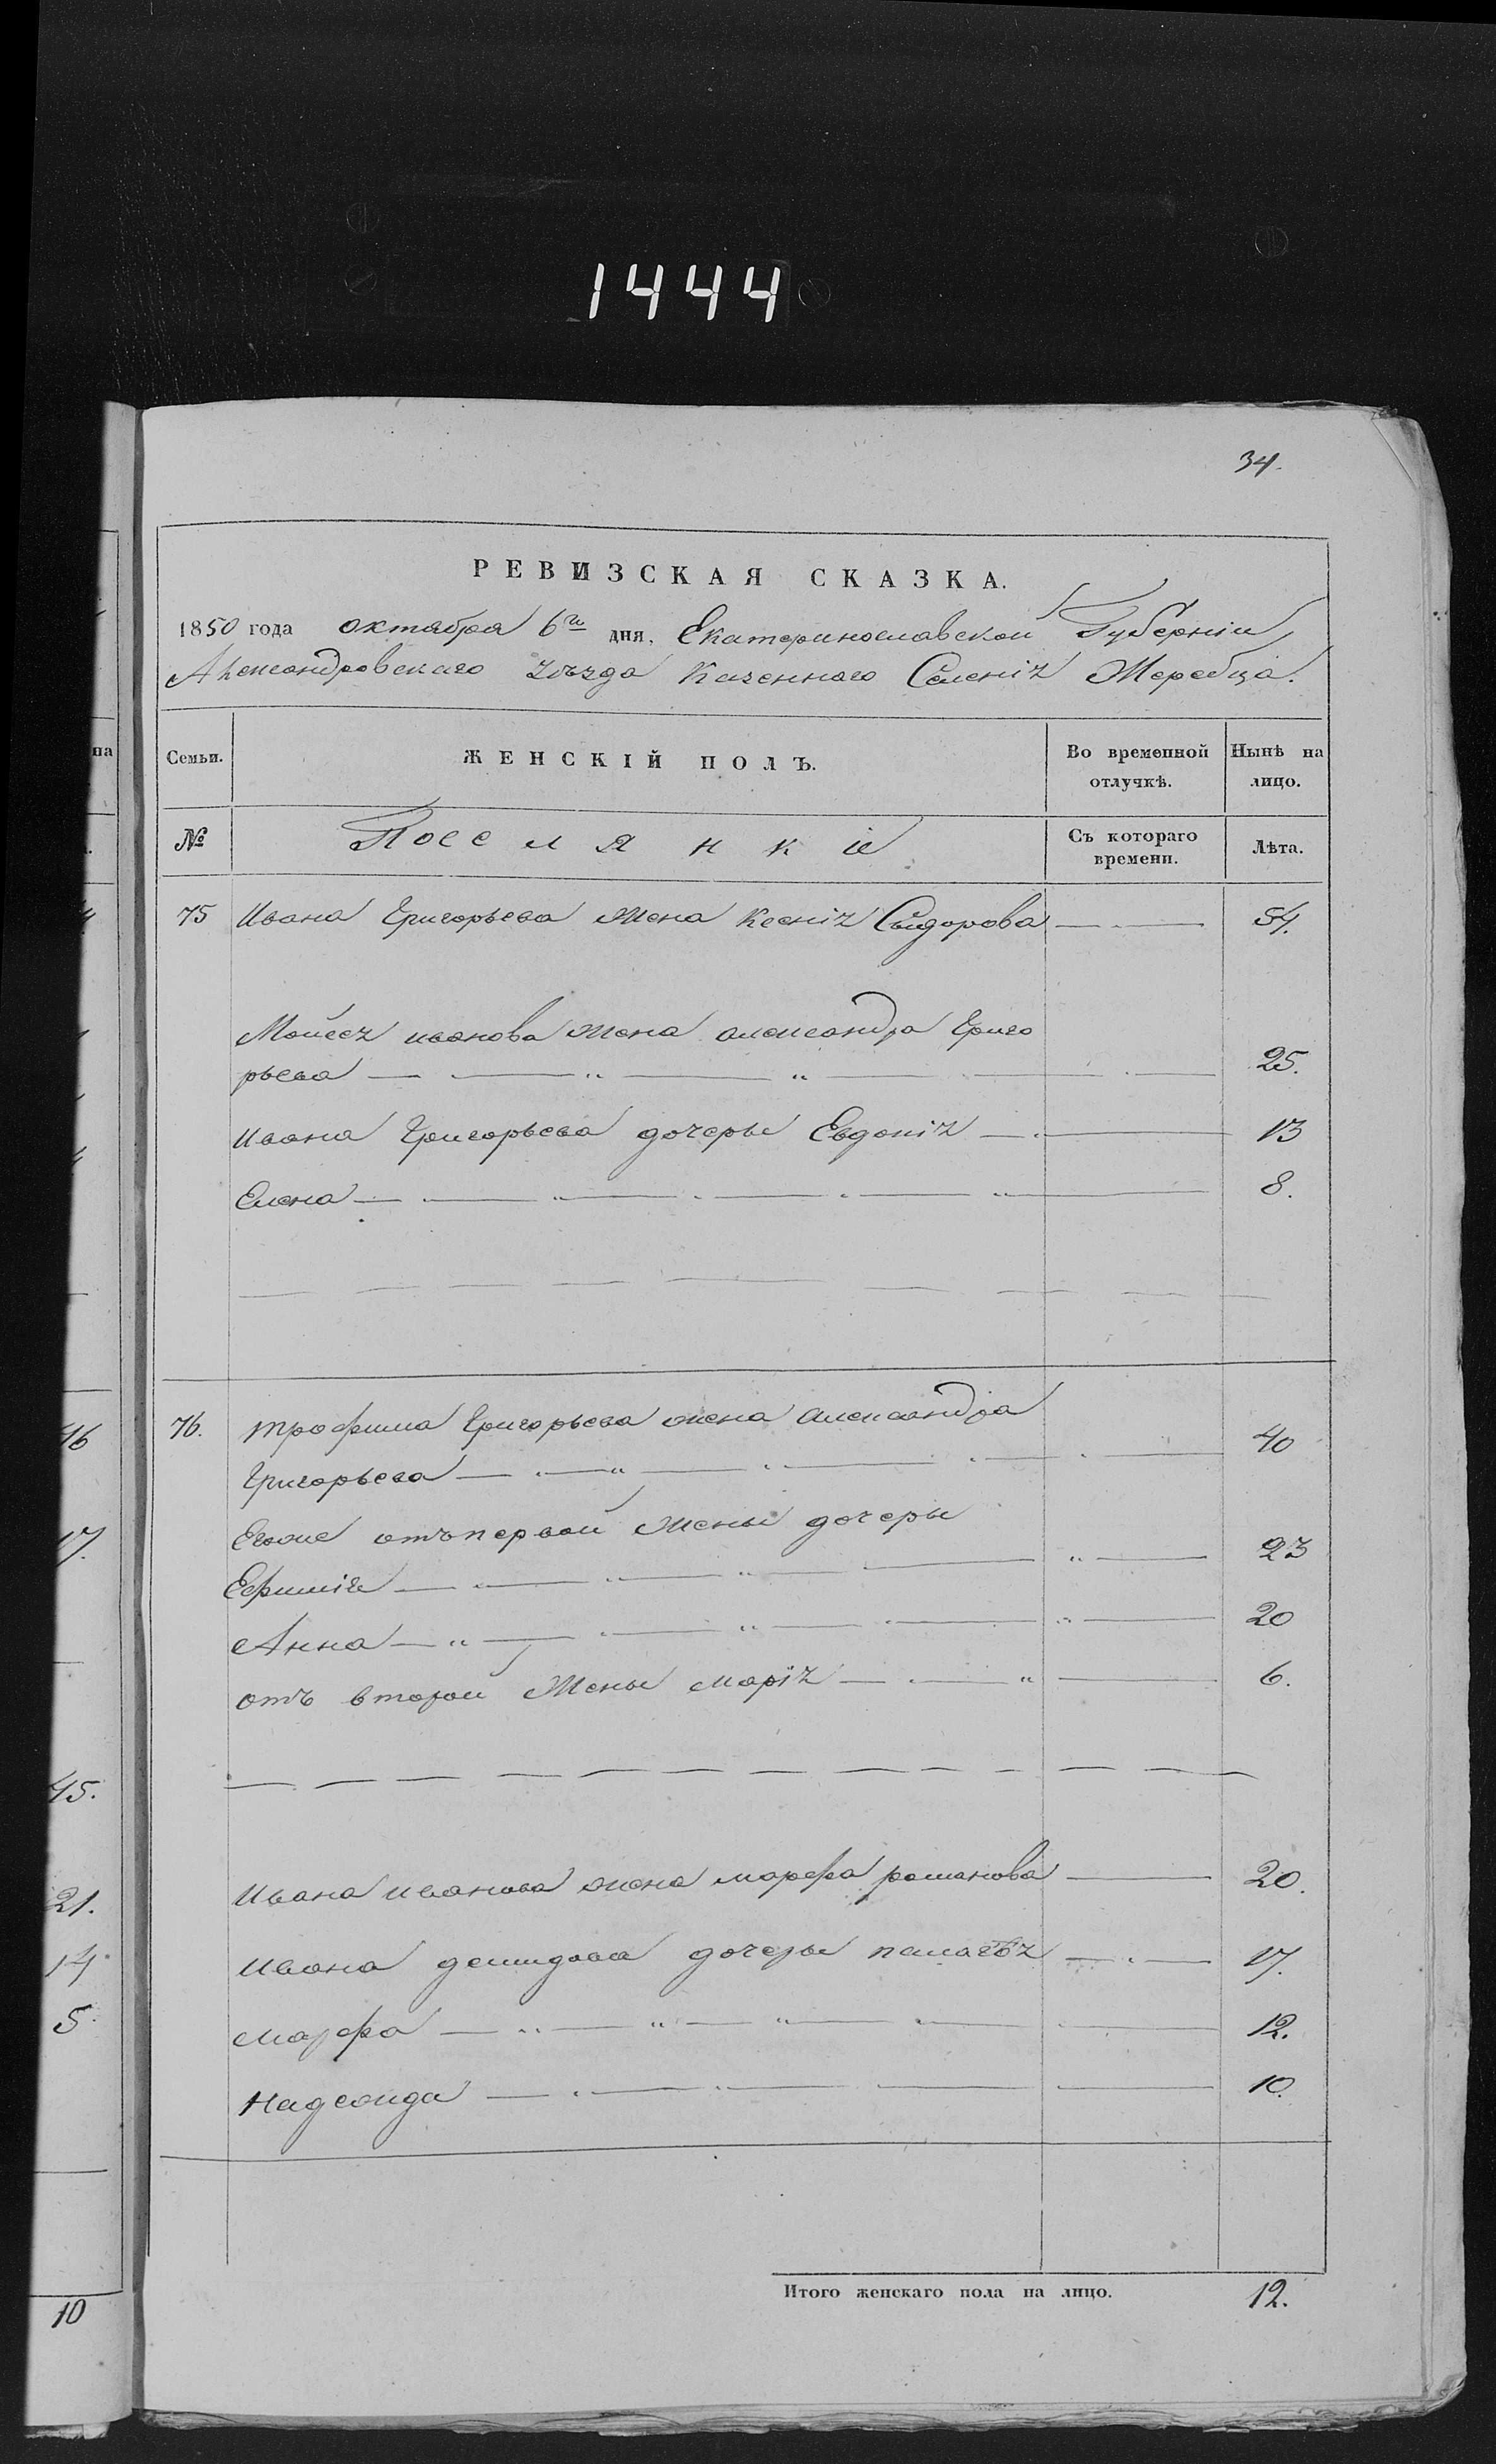 1444
34.
РЕВИЗСКАЯ СКАЗКА.
1850 года октября 6го дня, Екатеринославской Губерніи
Александровскаго уѣзда Казеннаго Селенія Жеребца.
на
Семьи.
ЖЕНСКІЙ ПОЛЪ.
Во временной отлучкѣ.
Нынѣ на лицо.
№
Поселянки
Съ котораго времени.
Лѣта.
75 Ивана Григорьева жена Ксенія Сыдорова 54.
Мойсея иванова жена александра Григо
рьева 25.
Ивана Григорьева дочеры Евдокія 13
Елена 8.
76. трофима Григорьева жена александра
Григорьева 40
Егоже отъ первой жены дочеры
Ефимія 23
Анна 20
отъ второй жены марія 6.
Ивана иванова жена марфа романова 20.
Ивана демидова дочеры палагѣя 17.
марфа 12.
Надежда 10.
Итого женскаго пола на лицо. 12.
16
17.
45.
21.
14
5
10